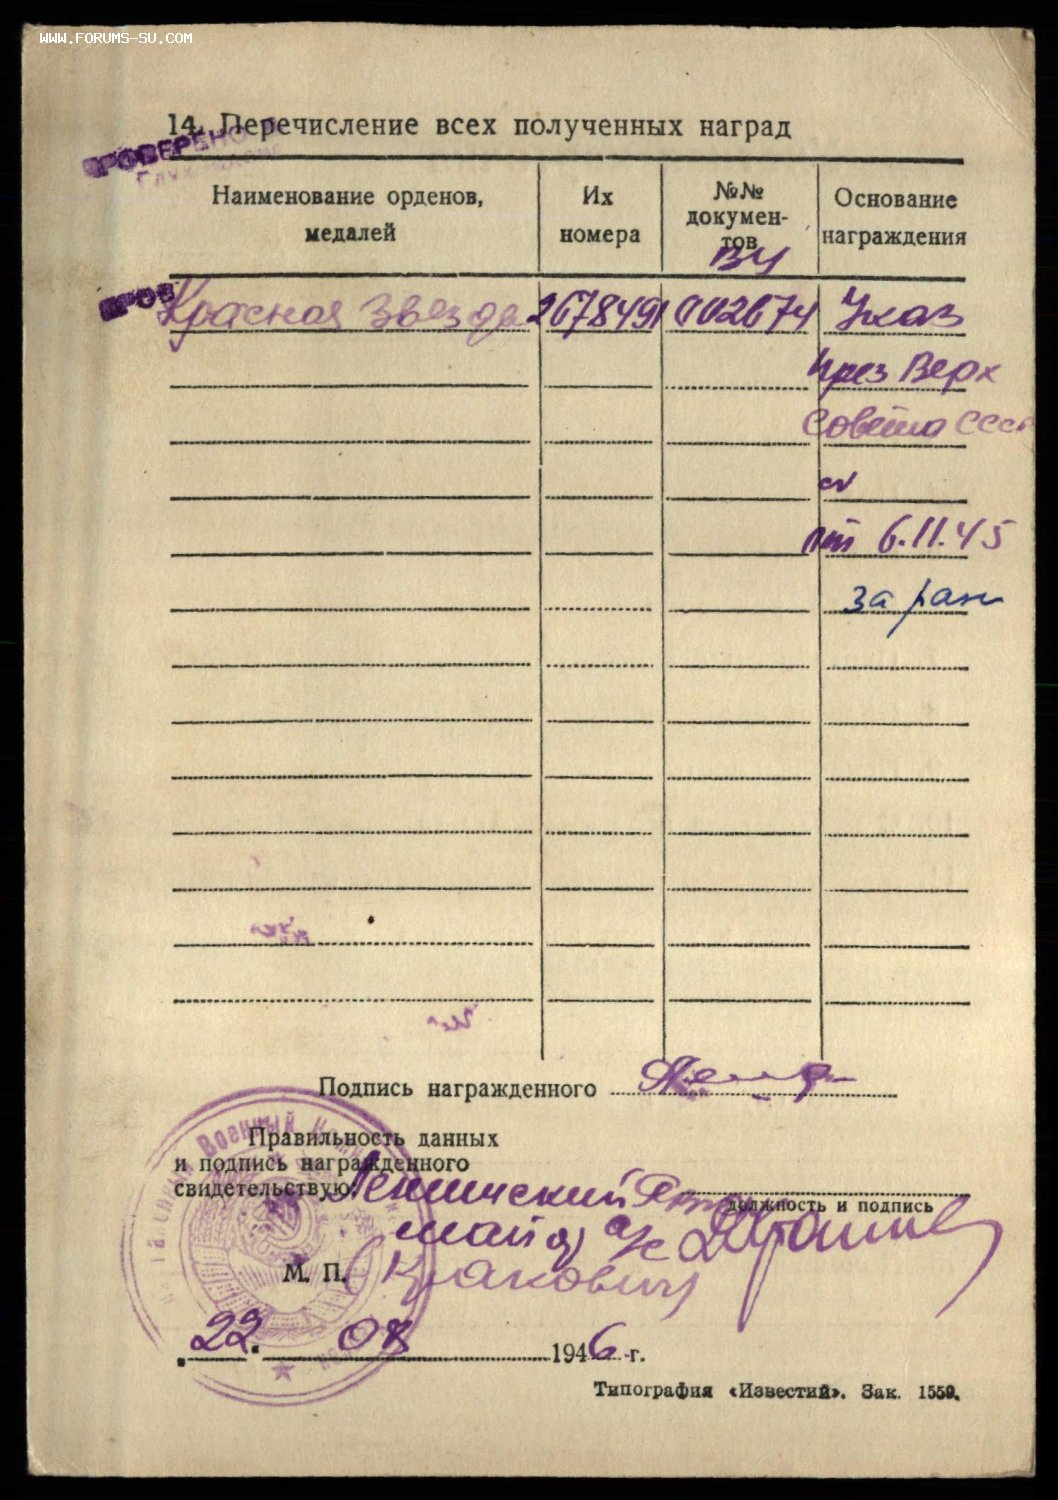 WWW.FORUMS-SU.COM
14. Перечисление всех полученных наград
ПРОВЕРЕНО
Наименование орденов, медалей
Их номера
№№ докумен-тов
Основание награждения
ВУ
ПРОВ
Красная звезда 2678491 002674 Указ
През Верх
Совета СССР
от 6.11.45
за ран
Подпись награжденного
Правильность данных
и подпись награжденного
свидетельствую:
Ленинский
должность и подпись
майор
М. П.
22. 08 1946 г.
Типография «Известий». Зак. 1559.